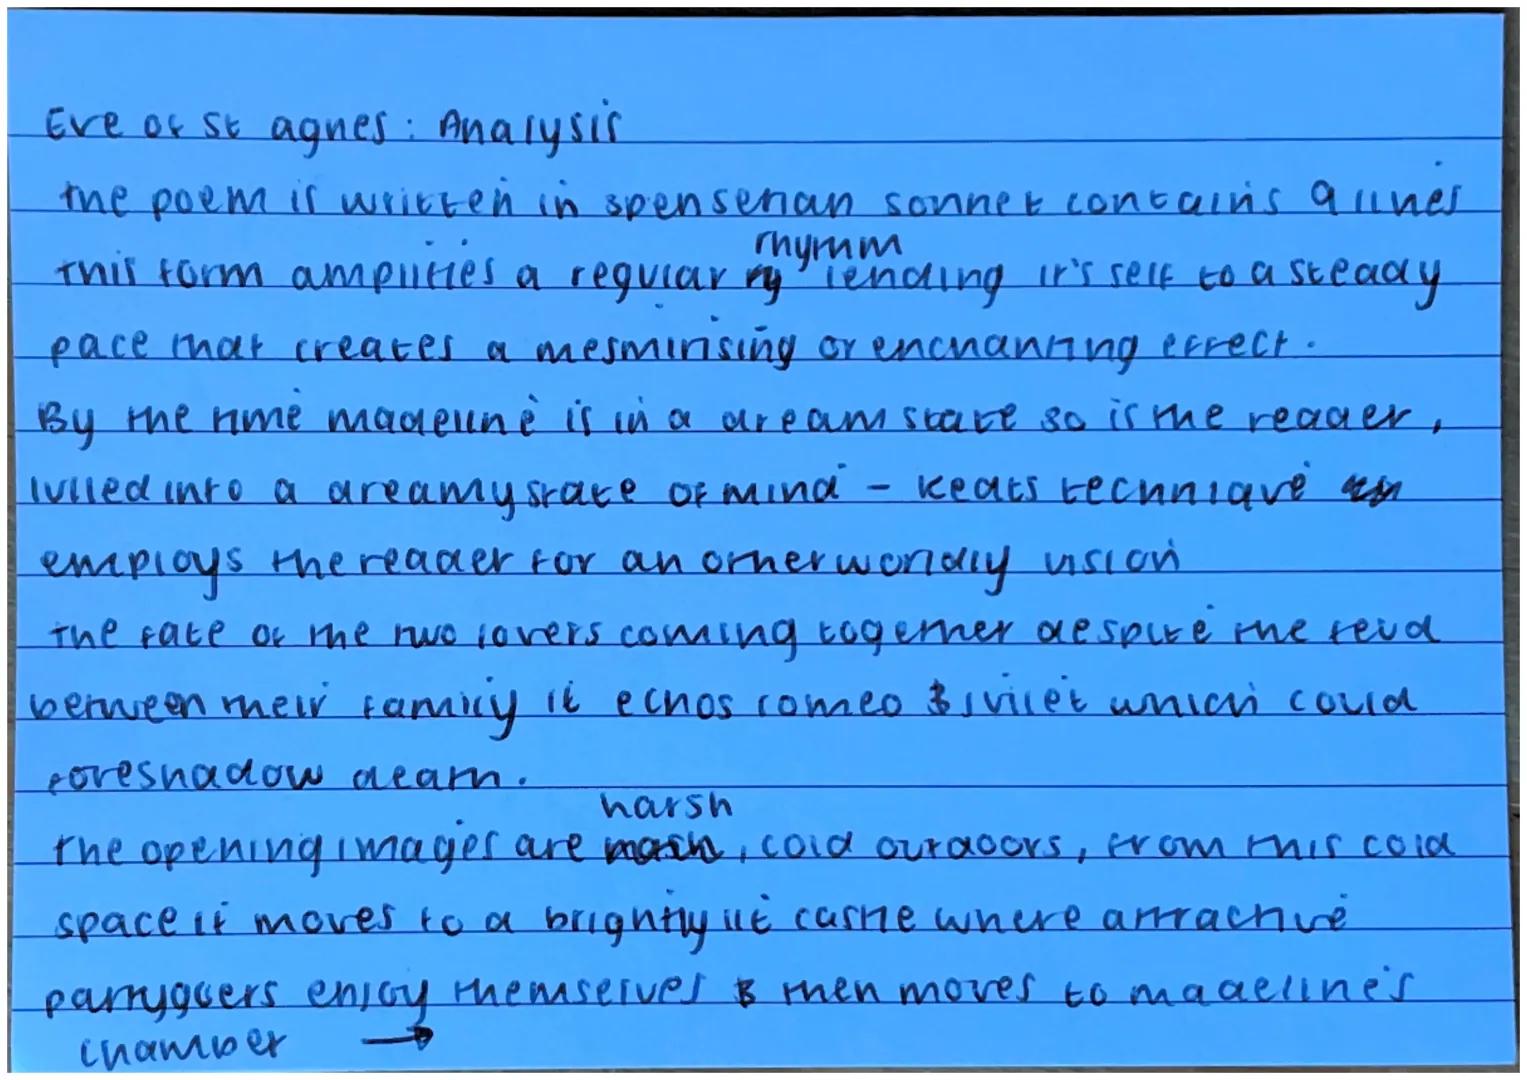 Eve of St agnes: Analysis
the poem is written in spenserian sonnet contains 9 lines
rhymm
This form amplifies a regular ry lending it's self to a steady
pace that creates a mesmirising or enchanting effect.
By the time madeline is in a dream state so is the reader,
lulled into a dreamy state of mind - Keats technique
employs the reader for an otherworldly vision
The fate of the two lovers coming together despite the feud
between their family it echos romeo & juliet which could
foreshadow death.
harsh
the opening images are , cold outdoors, from this cold
space it moves to a brightly lit castle where attractive
partygoers enjoy themselves & then moves to madeline's
chamber →